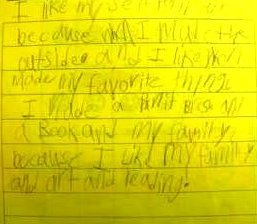 I like my self
because I
outside and I like
made my favorite things
I made a
a Book and my family,
because I like my family
and art and reading.